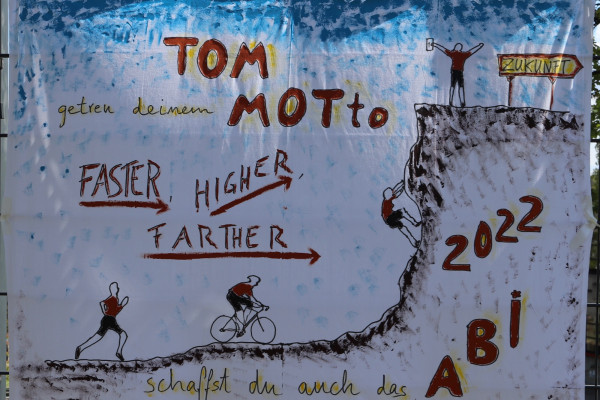 TOM
ZUKUNFT
getreu deinem MOTTO
FASTER, HIGHER,
FARTHER
2022
schaffst du auch das ABI